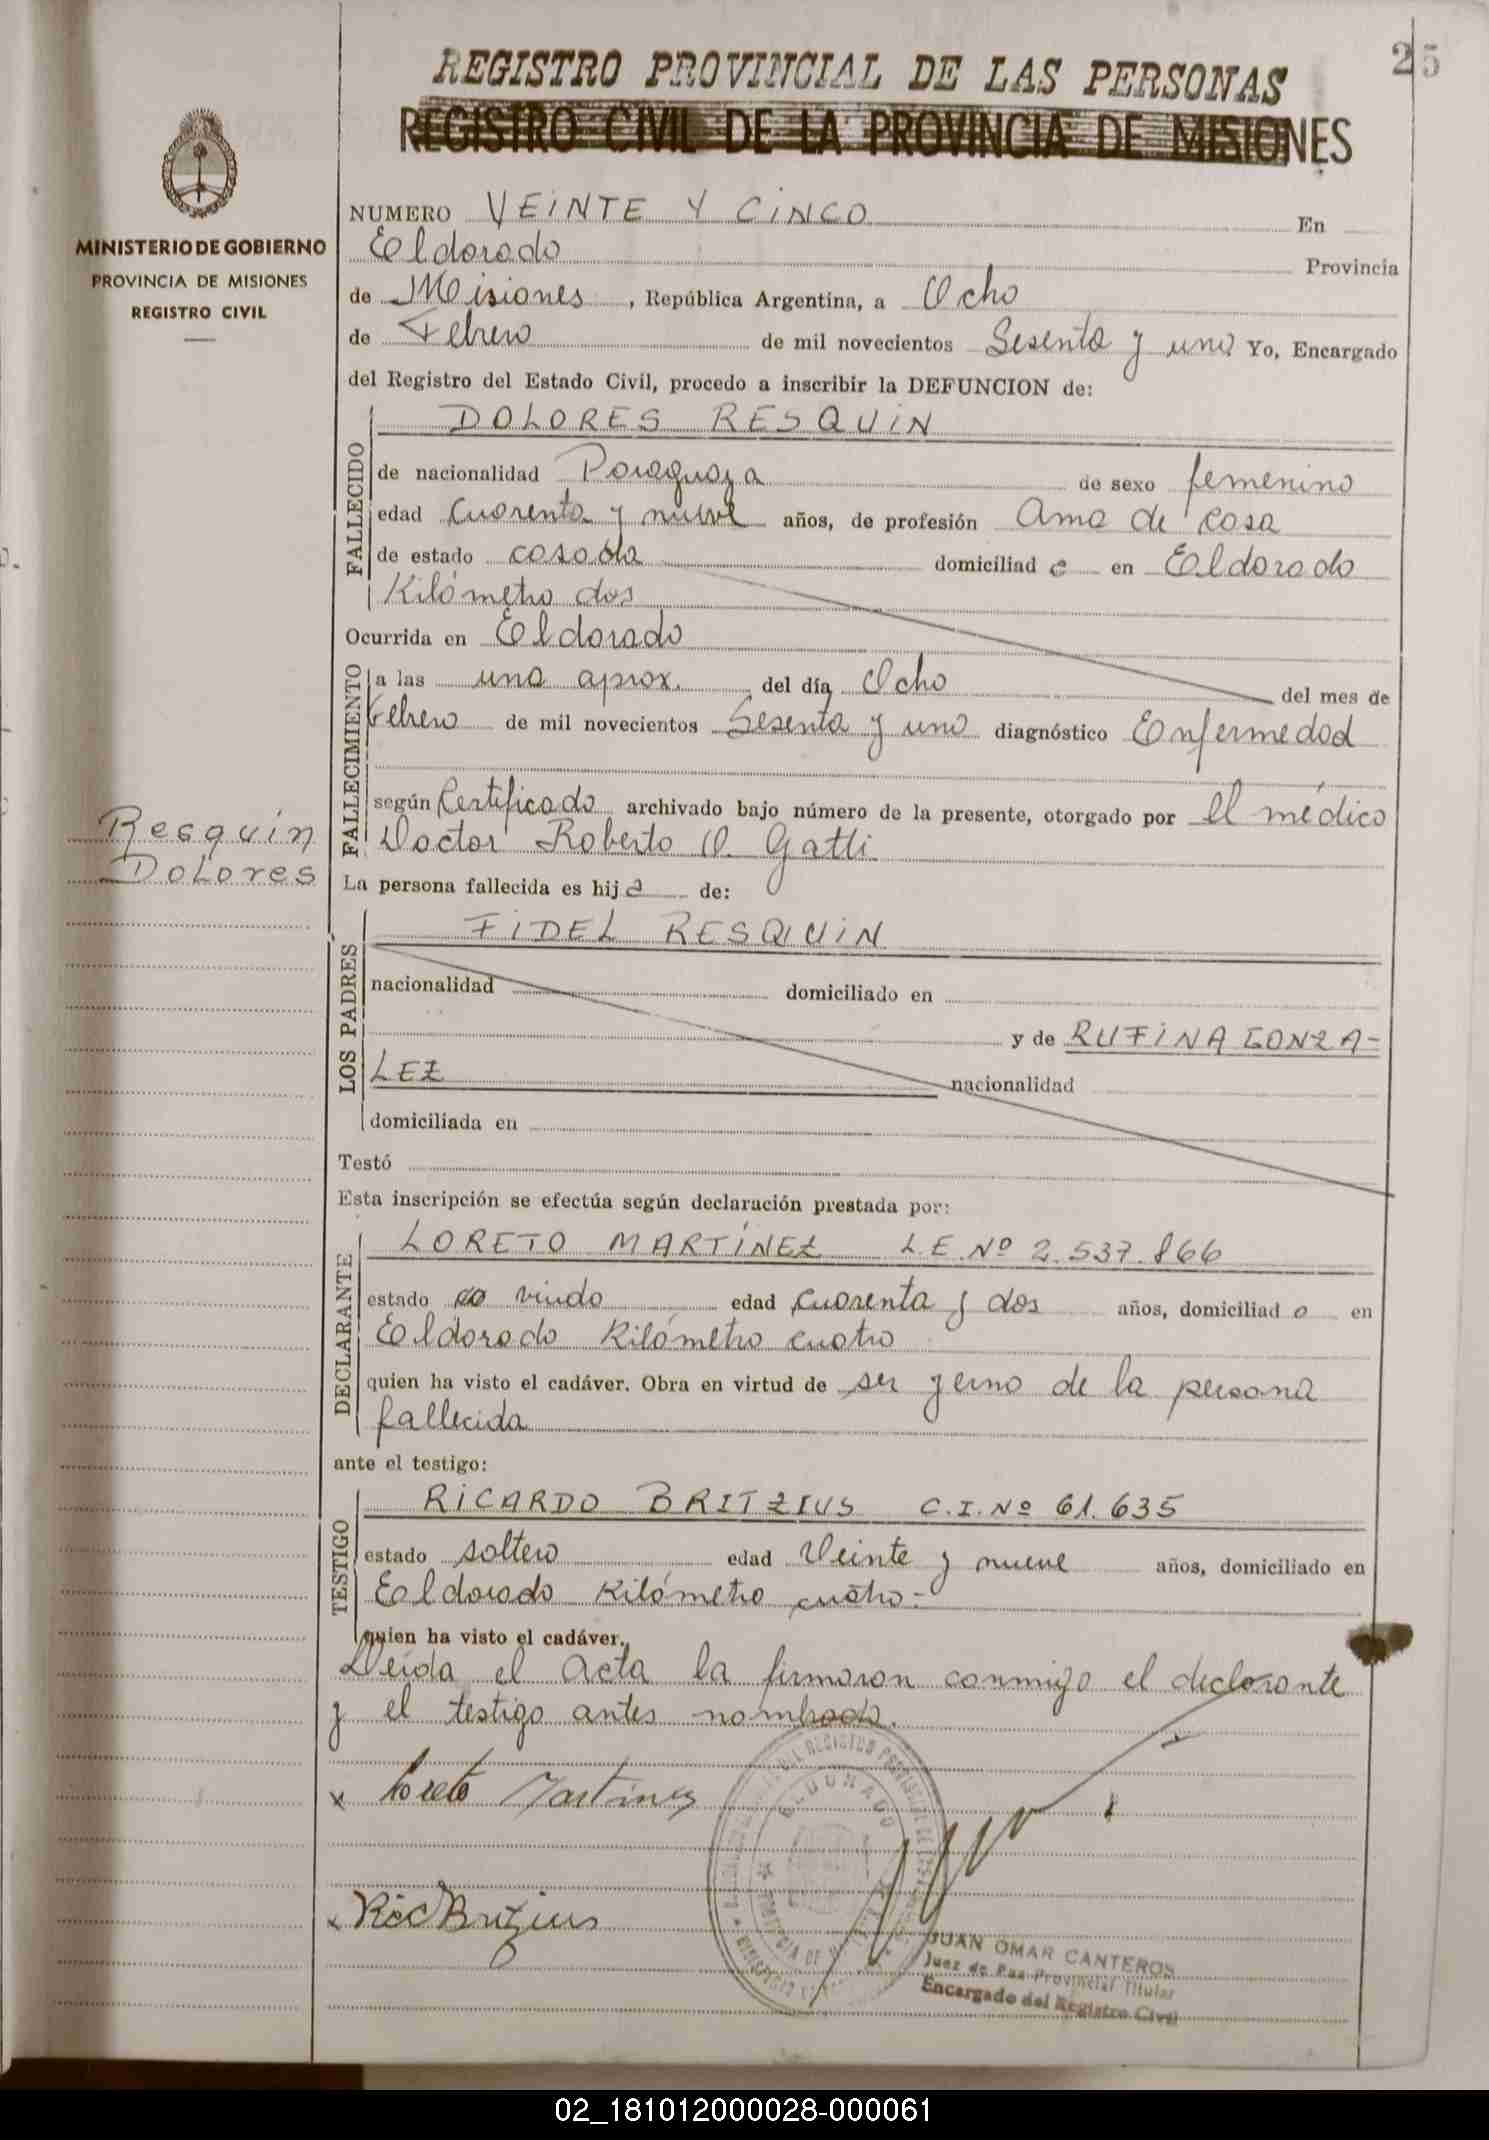 25
REGISTRO PROVINCIAL DE LAS PERSONAS
REGISTRO CIVIL DE LA PROVINCIA DE MISIONES
MINISTERIO DE GOBIERNO
PROVINCIA DE MISIONES
REGISTRO CIVIL
NUMERO VEINTE Y CINCO En
Eldorado Provincia
de Misiones, República Argentina, a Ocho
de Febrero de mil novecientos Sesenta y uno Yo, Encargado
del Registro del Estado Civil, procedo a inscribir la DEFUNCION de:
FALLECIDO
DOLORES RESQUIN
de nacionalidad Paraguaya de sexo femenino
edad cuarenta y nueve años, de profesión Ama de casa
de estado casada domiciliad a en Eldorado
Kilómetro dos
Ocurrida en Eldorado
FALLECIMIENTO
a las una aprox. del día Ocho del mes de
Febrero de mil novecientos Sesenta y uno diagnóstico Enfermedad
según Certificado archivado bajo número de la presente, otorgado por el médico
Doctor Roberto O. Gatti
Resquín
Dolores
La persona fallecida es hija de:
LOS PADRES
FIDEL RESQUIN
nacionalidad domiciliado en
y de RUFINA GONZA-
LEZ nacionalidad
domiciliada en
Testó
Esta inscripción se efectúa según declaración prestada por:
DECLARANTE
LORETO MARTÍNEZ L.E. Nº 2.537.866
estado viudo edad cuarenta y dos años, domiciliad o en
Eldorado Kilómetro cuatro
quien ha visto el cadáver. Obra en virtud de ser yerno de la persona
fallecida
ante el testigo:
TESTIGO
RICARDO BRITZIUS C.I. Nº 61.635
estado soltero edad Veinte y nueve años, domiciliado en
Eldorado Kilómetro cuatro.-
quien ha visto el cadáver.
Leída el acta la firmaron conmigo el declarante
y el testigo antes nombrado.
x Loreto Martinez
ELDORADO
x Ric Britzius
JUAN OMAR CANTEROS
Juez de Paz Provincial Titular
Encargado del Registro Civil
02_181012000028-000061